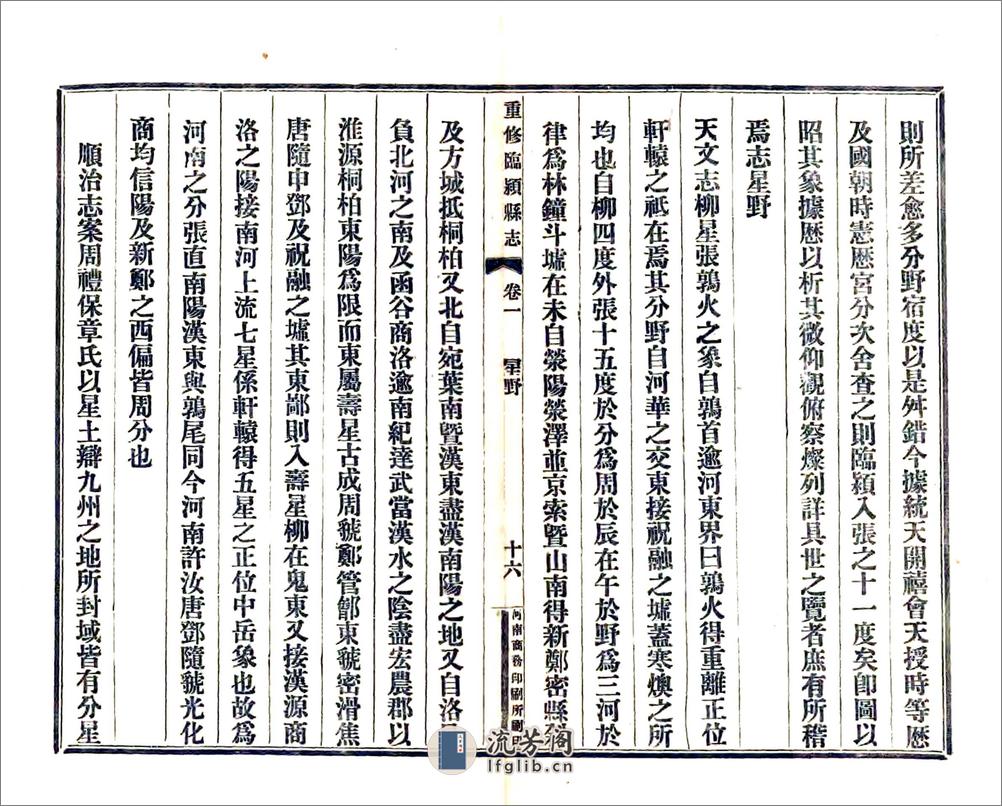 則所差愈多分野宿度以是舛錯今據統天開禧會天授時等歷
及國朝時憲歷宮分次舍查之則臨潁入張之十一度矣卽圖以
昭其象據歷以析其微仰觀俯察燦列詳具世之覽者庶有所稽
焉志星野
天文志柳星張鶉火之象自鶉首逾河東界曰鶉火得重離正位
軒轅之祗在焉其分野自河華之交東接祝融之墟蓋寒燠之所
均也自柳四度外張十五度於分爲周於辰在午於野爲三河於
律爲林鐘斗墟在未自滎陽滎澤並京索暨山南得新鄭密縣
重修臨潁縣志 卷一 星野 十六 河南商務印刷所刷印
及方城抵桐柏又北自宛葉南暨漢東盡漢南陽之地又自洛
負北河之南及函谷商洛逾南紀達武當漢水之陰盡宏農郡以
淮源桐柏東陽爲限而東屬壽星古成周虢鄭管鄶東虢密滑焦
唐隨申鄧及祝融之墟其東鄙則入壽星柳在鬼東又接漢源商
洛之陽接南河上流七星係軒轅得五星之正位中岳象也故爲
河南之分張直南陽漢東與鶉尾同今河南許汝唐鄧隨虢光化
商均信陽及新鄭之西偏皆周分也
順治志案周禮保章氏以星土辯九州之地所封域皆有分星
流芳阁
lfglib.cn